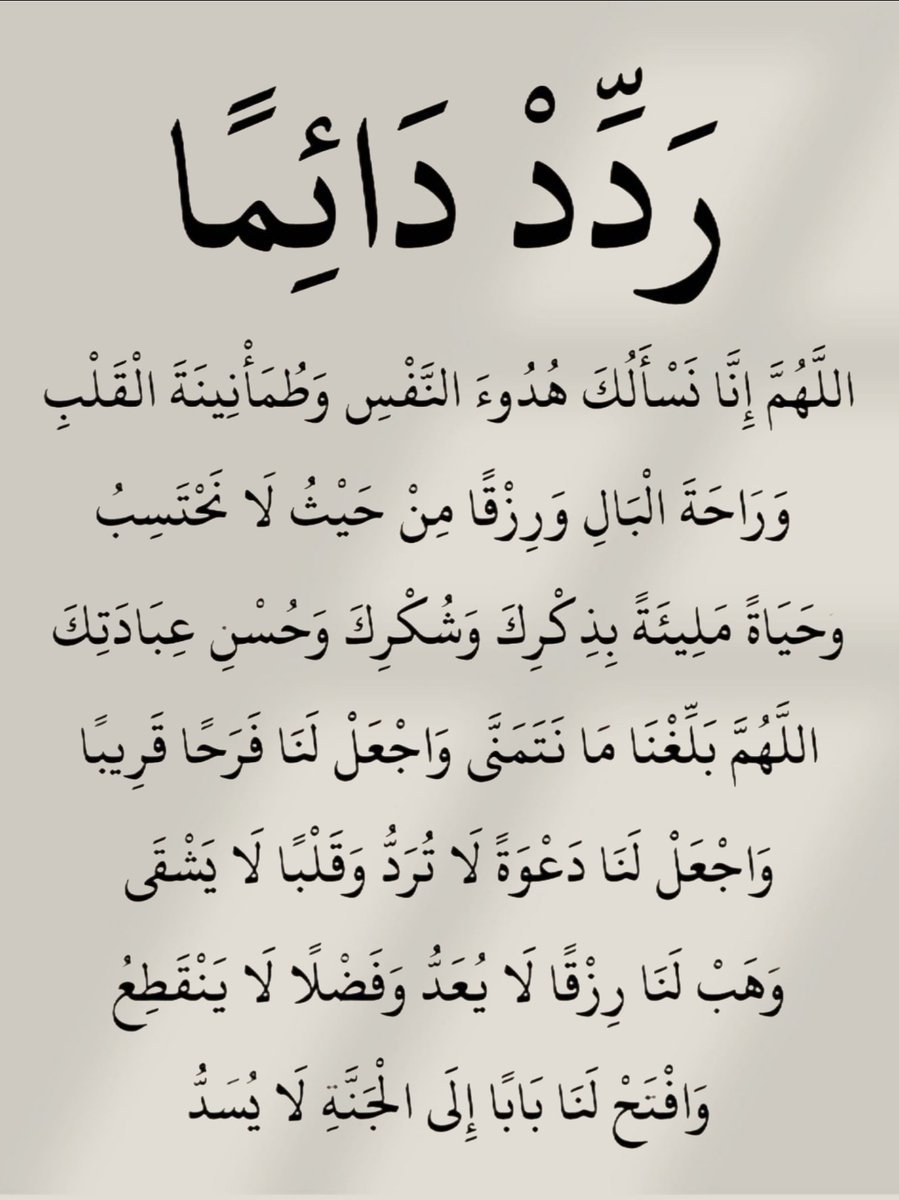 رَدِّدْ دَائِمًا
اللَّهُمَّ إِنَّا نَسْأَلُكَ هُدُوءَ النَّفْسِ وَطُمَأْنِينَةَ الْقَلْبِ
وَرَاحَةَ الْبَالِ وَرِزْقًا مِنْ حَيْثُ لَا نَحْتَسِبُ
وحَيَاةً مَلِيئَةً بِذِكْرِكَ وَشُكْرِكَ وَحُسْنِ عِبَادَتِكَ
اللَّهُمَّ بَلِّغْنَا مَا نَتَمَنَّى وَاجْعَلْ لَنَا فَرَحًا قَرِيبًا
وَاجْعَلْ لَنَا دَعْوَةً لَا تُرَدُّ وَقَلْبًا لَا يَشْقَى
وَهَبْ لَنَا رِزْقًا لَا يُعَدُّ وَفَضْلًا لَا يَنْقَطِعُ
وَافْتَحْ لَنَا بَابًا إِلَى الْجَنَّةِ لَا يُسَدُّ